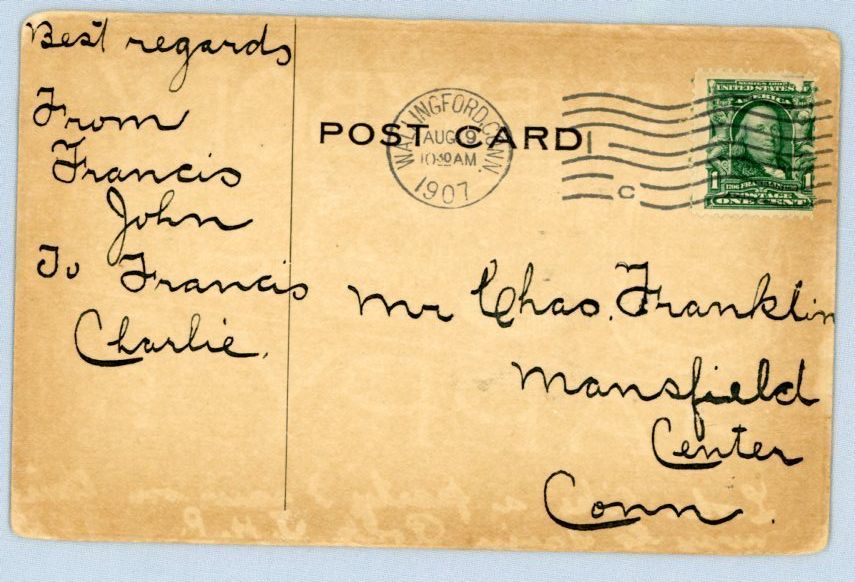 Best regards
From
Francis
John
To Francis
Charlie.
POST CARD
WALLINGFORD, CONN.
AUG 9
10-30 AM
1907
C
SERIES 1902
UNITED STATES OF
AMERICA
1 1706 FRANKLIN 1790 1
POSTAGE
ONE CENT
Mr Chas. Franklin
Mansfield
Center
Conn.